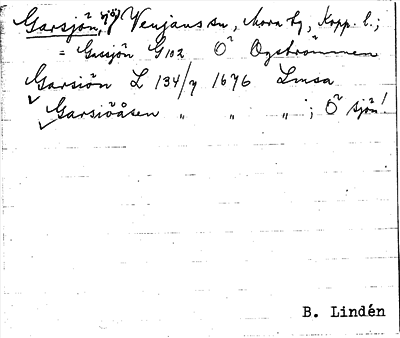 Garsjön, sjö, Venjans sn, Mora tg, Kopp. l.;
= Gassjön G102 Ö Ogströmmen
Garsiön L 134/7 1676 Lmsa
Garsiöåsen " " " ; Ö sjön!
B. Lindén